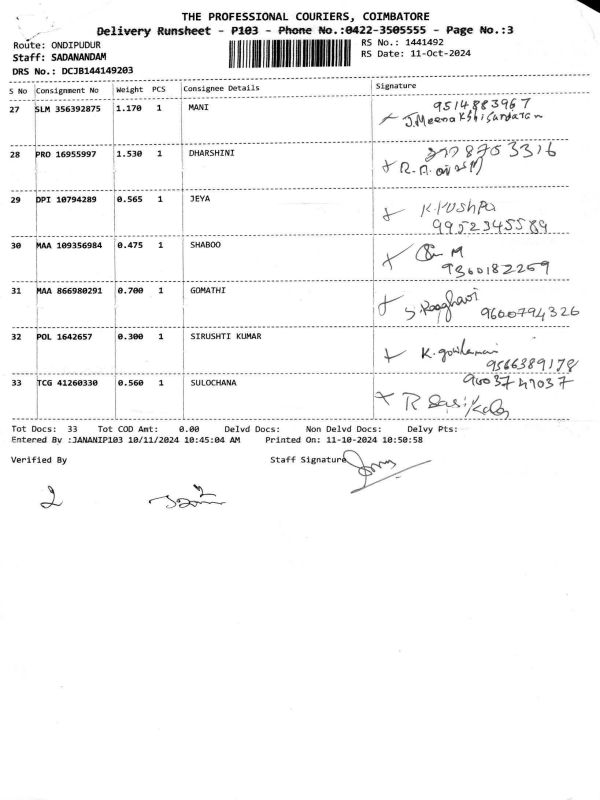 THE PROFESSIONAL COURIERS, COIMBATORE
Delivery Runsheet - P103 - Phone No.:0422-3505555 - Page No.:3
Route: ONDIPUDUR
RS No.: 1441492
Staff: SADANANDAM
RS Date: 11-Oct-2024
DRS No.: DCJB144149203
S No Consignment No Weight PCS Consignee Details Signature
27 SLM 356392875 1.170 1 MANI 9514883967
J.Meenakshisundaram
28 PRO 16955997 1.530 1 DHARSHINI 8778703316
29 DPI 10794289 0.565 1 JEYA K.KUSHPA
9952345589
30 MAA 109356984 0.475 1 SHABOO
9360182259
31 MAA 866980291 0.700 1 GOMATHI S.Raaghavi 9600794326
32 POL 1642657 0.300 1 SIRUSHTI KUMAR K.
9566389178
33 TCG 41260330 0.560 1 SULOCHANA 9003747037
R Sasikala
Tot Docs: 33 Tot COD Amt: 0.00 Delvd Docs: Non Delvd Docs: Delvy Pts:
Entered By :JANANIP103 10/11/2024 10:45:04 AM Printed On: 11-10-2024 10:50:58
Verified By Staff Signature